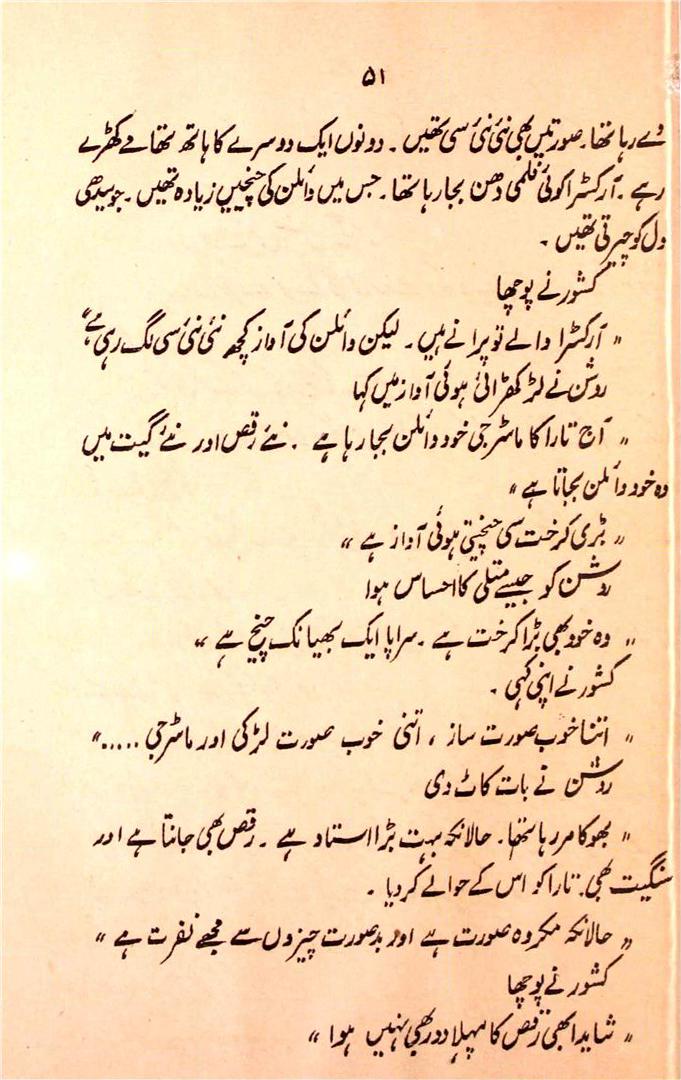 ۵۱
دے رہا تھا۔ صورتیں بھی نئی نئی سی تھیں۔ دونوں ایک دوسرے کا ہاتھ تھامے کھڑے
رہے۔ آرکسٹرا کوئی فلمی دھن بجا رہا تھا۔ جس میں وائلن کی چنچیں زیادہ تھیں۔ جو سیدھی
دل کو چیرتی تھیں۔
کشور نے پوچھا
"آرکسٹرا والے تو پرانے ہیں۔ لیکن وائلن کی آواز کچھ نئی نئی سی لگ رہی ہے"
روشن نے لڑکھڑائی ہوئی آواز میں کہا
"آج تارا کا ماسٹر جی خود وائلن بجا رہا ہے۔ نئے رقص اور نئے گیت میں
وہ خود وائلن بجاتا ہے"
"بڑی کرخت سی چنچیتی ہوئی آواز ہے"
روشن کو جیسے متلی کا احساس ہوا
"وہ خود بھی بڑا کرخت ہے۔ سراپا ایک بھیانک چنچ ہے"
کشور نے اپنی کہی۔
"اتنا خوب صورت ساز، اتنی خوب صورت لڑکی اور ماسٹر جی ....."
روشن نے بات کاٹ دی
"بھوکا مر رہا تھا۔ حالانکہ بہت بڑا استاد ہے۔ رقص بھی جانتا ہے اور
سنگیت بھی۔ تارا کو اس کے حوالے کر دیا۔
"حالانکہ مکروہ صورت ہے اور بدصورت چیزوں سے مجھے نفرت ہے"
کشور نے پوچھا
"شاید ابھی رقص کا پہلا دور بھی نہیں ہوا"